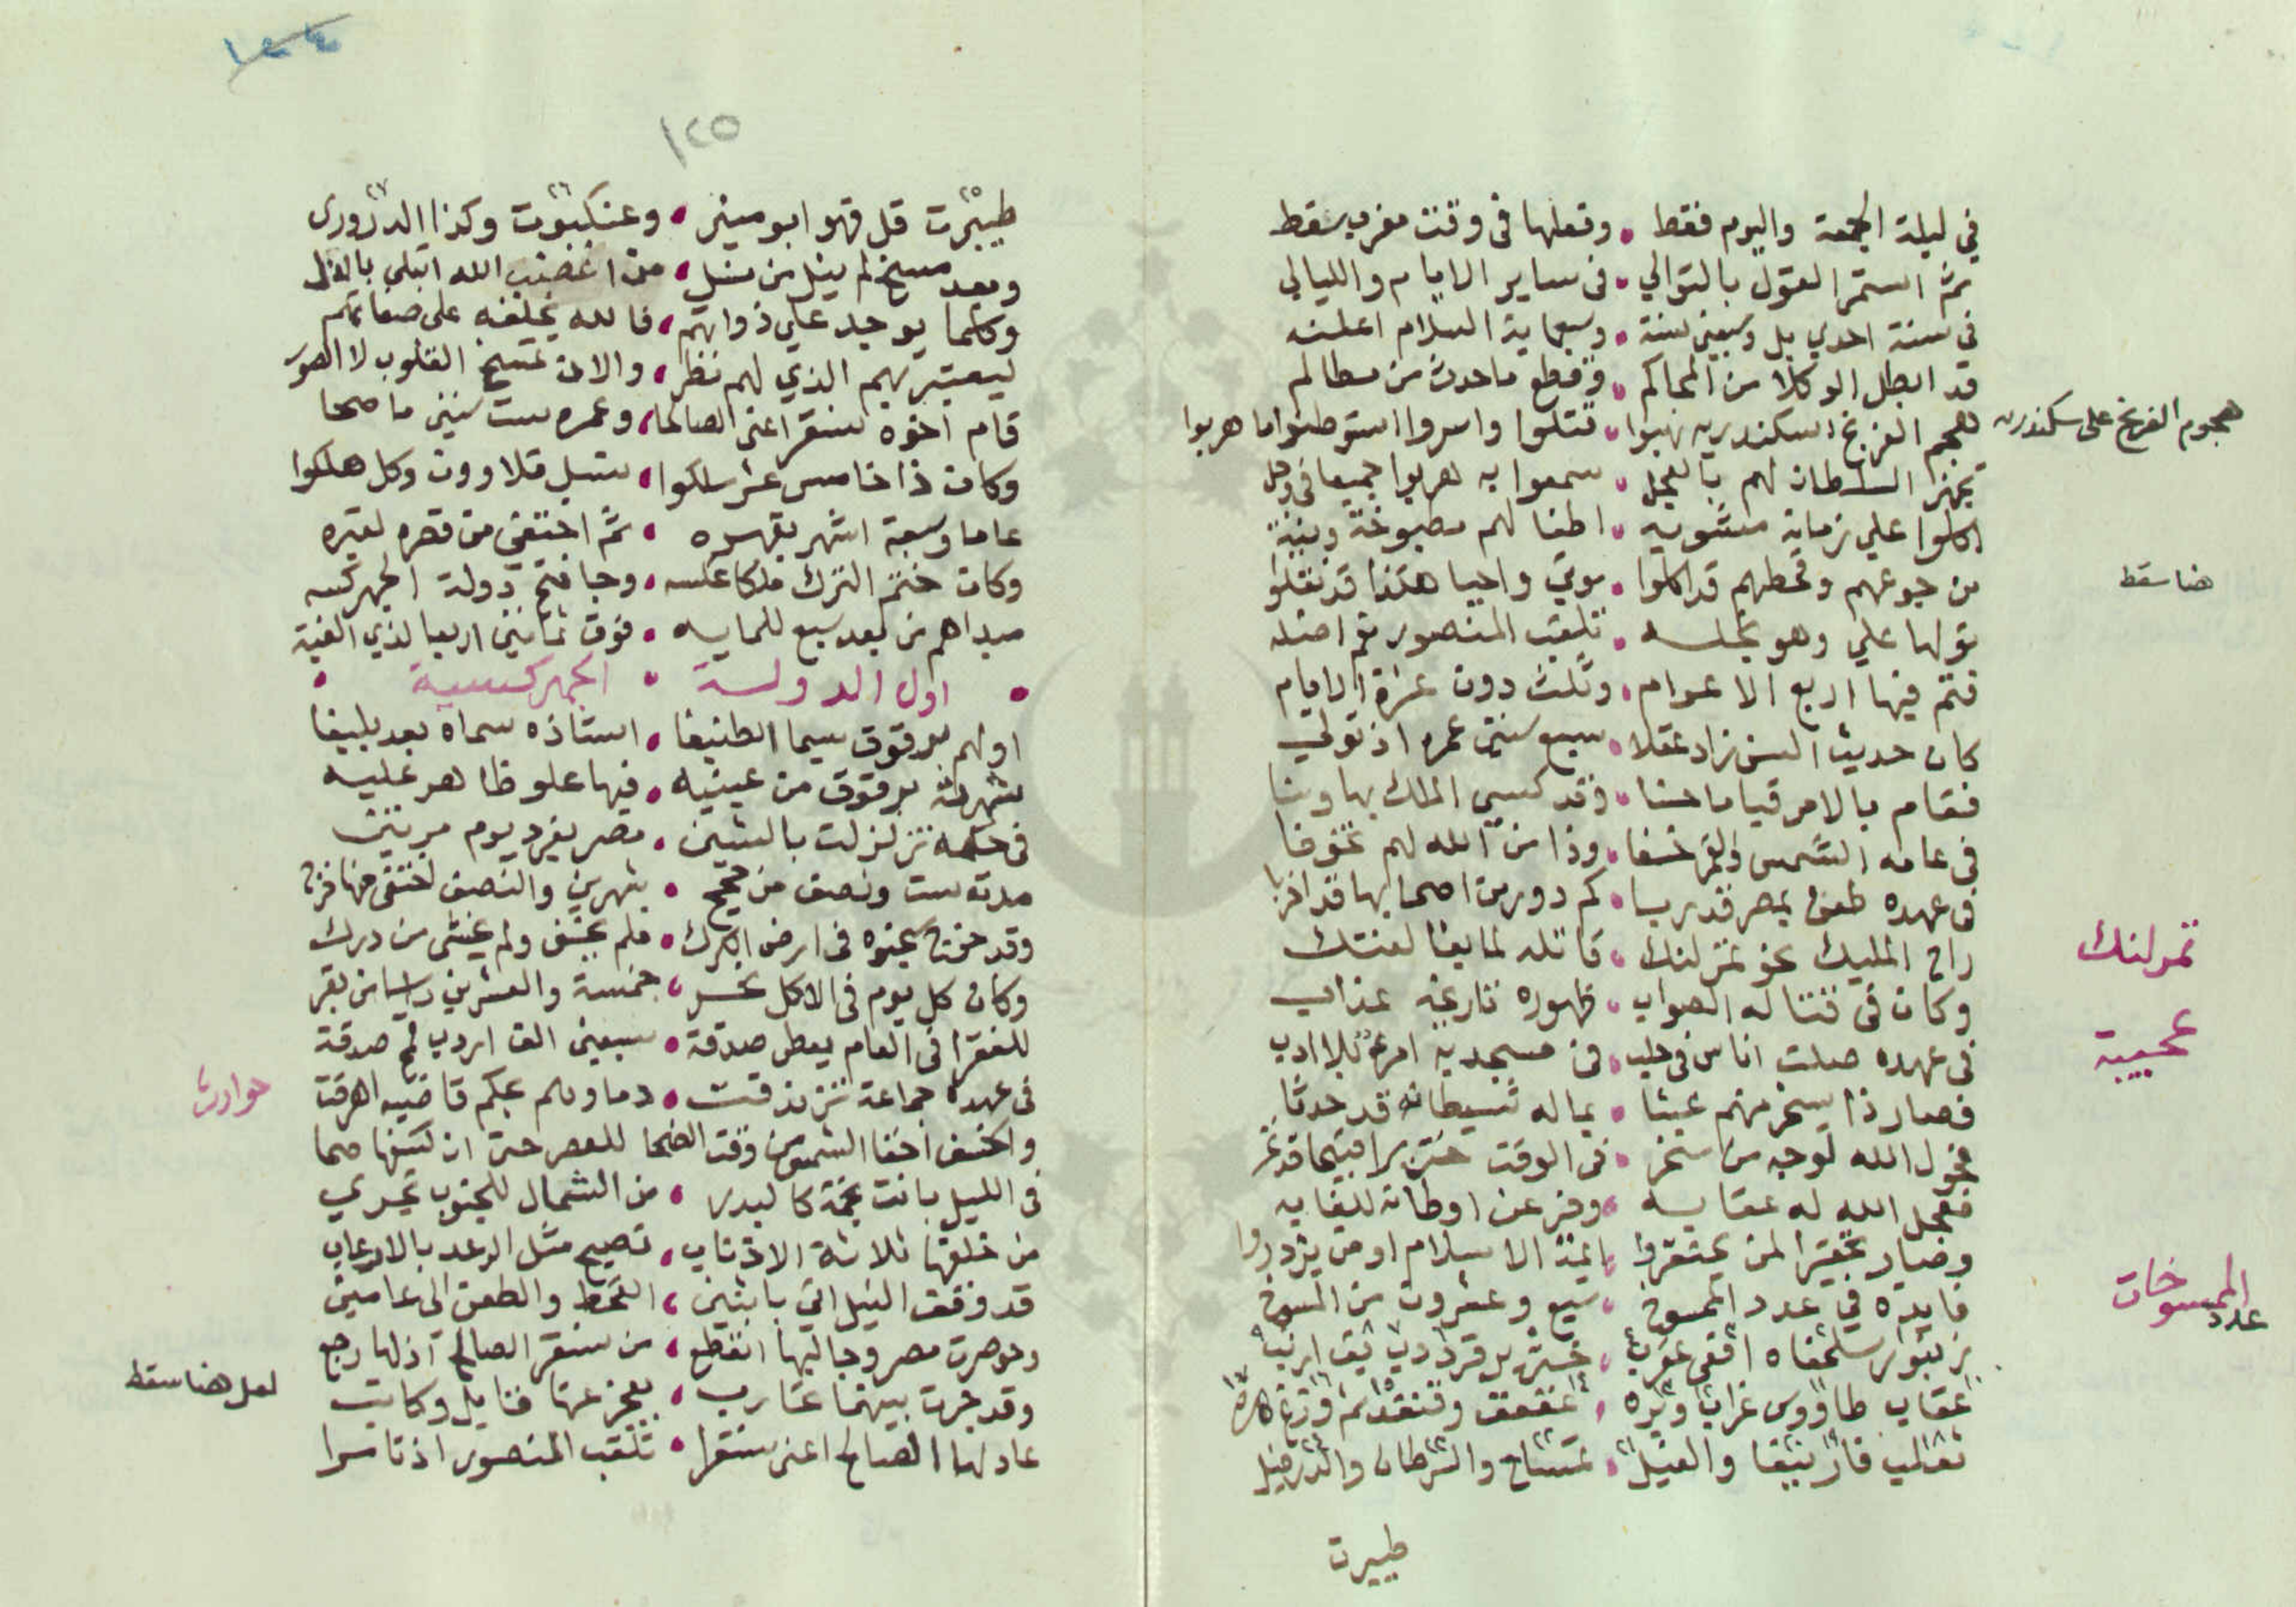 في ليلة الجمعة واليوم فقط • وفعلها في وقت مغرب سقط
ثم استمر القول بالتوالي • في ساير الايام والليالي
في سنة احدي بل وسبعين سنة • وسبعماية السلام اعلنه
قد ابطل الوكلا من المحاكم • وقطع ماحدث من مظالم
هجوم الفرنج على سكندريه
هجم الفرنج اسكندريه نهبوا • قتلوا واسروا استوطنوا ما هربوا
تجهز السلطان لهم بالعجل • سمعوا به هربوا جميعا في وجل
اكلوا علي زمانه مشويه • اطفالهم مطبوخة ونية
هنا سقط
من جوعهم وقحطهم قد اكلوا • موتي واحيا هكذا قد نقلوا
تولها علي وهو نجله • تلقب المنصور ثم اصله
فتم فيها اربع الاعوام • وثلث دون عشرة الايام
كان حديث السن زاد عقلا • سبع سنين عمره اذ تولي
فقام بالامر قياما حسنا • وقد كسي الملك بها وسنا
في عامه الشمس والقمر خسفا • وذا من الله لهم تخوفا
في عهده طعن بمصر قد ربا • كم دور من اصحابها قد اخربا
تمرلنك
راح المليك نحو تمرلنك • قاتله لما بغا لفتك
عجيبة
وكان في قتاله الصواب • ظهوره تاريخه عذاب
في عهده صلت اناس في حلب • في مسجد به امرء بلا ادب
فصار ذا يسخر منهم عبثا • بما له شيطانه قد حدثا
فحول الله لوجه من سخر • في الوقت خنزيرا
فعجل الله له عقابه • وفر عن اوطانه للغابه
وصار تحقيرا لمن يحتقروا • ايمة الاسلام او من يزدروا
عدد الممسوخات
فايدة في عدد الممسوخ • سبع وعشرون من المسوخ
زنبور سلحفاه افعي عقرب • خنزير قرد دب ارنب
عقاب طاووس غراب وبره • عقعق وقنفد ثم وزغ هره
ثعالب فار ببغا والفيل • تمساح والشرطان والدرفيل
طيبرت
١٢٥
طيبرت قل قهو ابو مينر • وعنكبوت وكذا الدزوري
وبعد مسخ لم ينل من نسل • من اغضب الله ابتلي بالذل
وكلما يوجد علي ذواتهم • فالله يخلقه على صفاتهم
ليعتبر بهم الذي لهم نظر • والان تمسخ القلوب لا الصور
قام اخوه سنقر اعني الصالحا • وعمره ست سنين ما صحا
وكان ذا خامس عشر ملكوا • بنسل قلاوون وكل هلكوا
عاما وسبعة اشهر بقهره • ثم اختفي من قصره لقبره
وكان ختم الترك ملكا عكسه • وجا فتح دولة الجهركسه
مبداهم من بعد سبع للمايه • فوق ثمانين اربعا لذي الفيه
• اول الدولة • الجهركسية •
اولهم برقوق سيما الطنبغا • استاذه سماه بعد يلبغا
شهرته برقوق من عينيه • فيها علو ظاهر عليه
في حكمه تزلزلت بالشين • مصر بفرد يوم مرتين
مدته ست ونصف من حجج • شهرين والنصف اختفي منها خرج
وقد سجنوه في ارض الكرك • فلم يخف ولم يخشى من درك
وكان كل يوم في الاكل نحر • خمسة والعشرين راسا من بقر
للفقرا في العام يعطي صدقة • سبعين الف اردب قمح صدقة
حوادث
في عهده جماعة تزندقت • دماوهم بحكم قاضيه اهرقت
واكسف اخفا الشمس من وقت الضحا • للعصر حتى ان كشفها صحا
في الليل بانت نجمة كالبدر • من الشمال للجنوب تجري
من خلفها ثلاثة الاذناب • تصيح مثل الرعد بالارعاب
قد وقف النيل اتي باثنين • القحط والطعن الى عامين
وحوصرت مصر وجالبها انقطع • من سنقر الصالح اذ لها رجع
لعل هنا سقط
وقد جرت بينهما عقارب • يعجز عنها قايل وكاتب
عاد لها الصالح اعني سنقرا • تلقب المنصور اذ تامرا